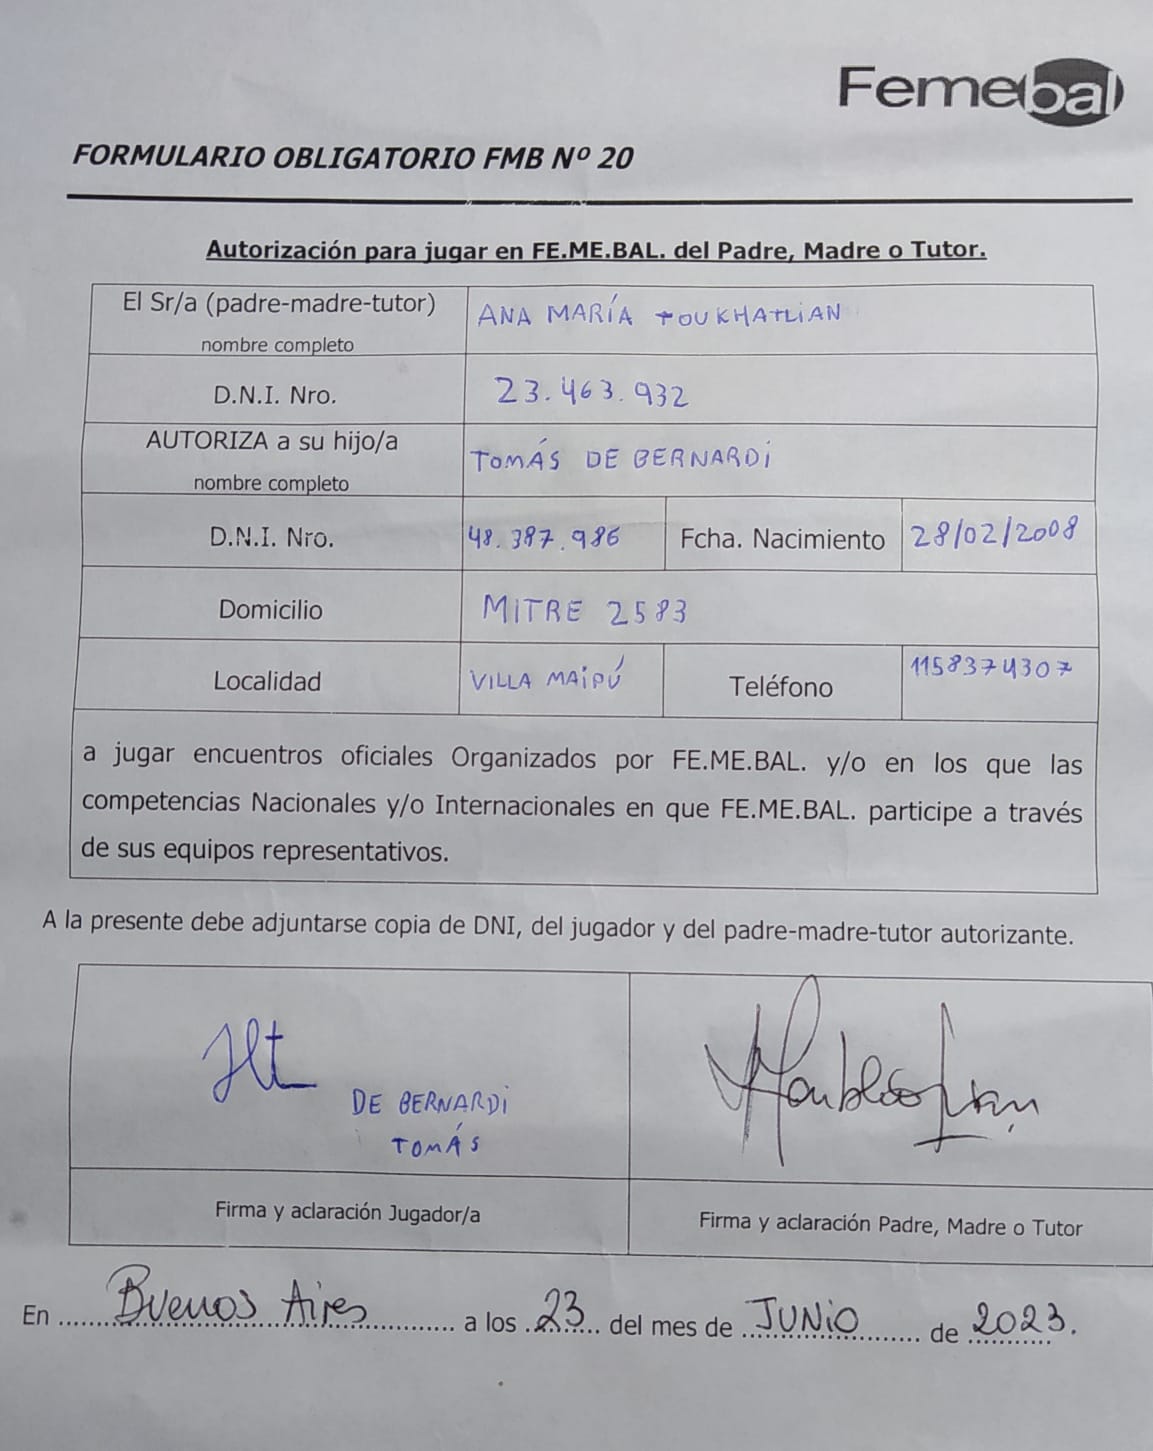 Femebal
FORMULARIO OBLIGATORIO FMB Nº 20
Autorización para jugar en FE.ME.BAL. del Padre, Madre o Tutor.
El Sr/a (padre-madre-tutor) nombre completo
ANA MARÍA TOUKHATLIAN
D.N.I. Nro.
23.463.932
AUTORIZA a su hijo/a nombre completo
TOMÁS DE BERNARDI
D.N.I. Nro.
48.387.986
Fcha. Nacimiento
28/02/2008
Domicilio
MITRE 2583
Localidad
VILLA MAIPÚ
Teléfono
1158374307
a jugar encuentros oficiales Organizados por FE.ME.BAL. y/o en los que las
competencias Nacionales y/o Internacionales en que FE.ME.BAL. participe a través
de sus equipos representativos.
A la presente debe adjuntarse copia de DNI, del jugador y del padre-madre-tutor autorizante.
DE BERNARDI
TOMÁS
Firma y aclaración Jugador/a
Firma y aclaración Padre, Madre o Tutor
En Buenos Aires a los 23 del mes de JUNIO de 2023.